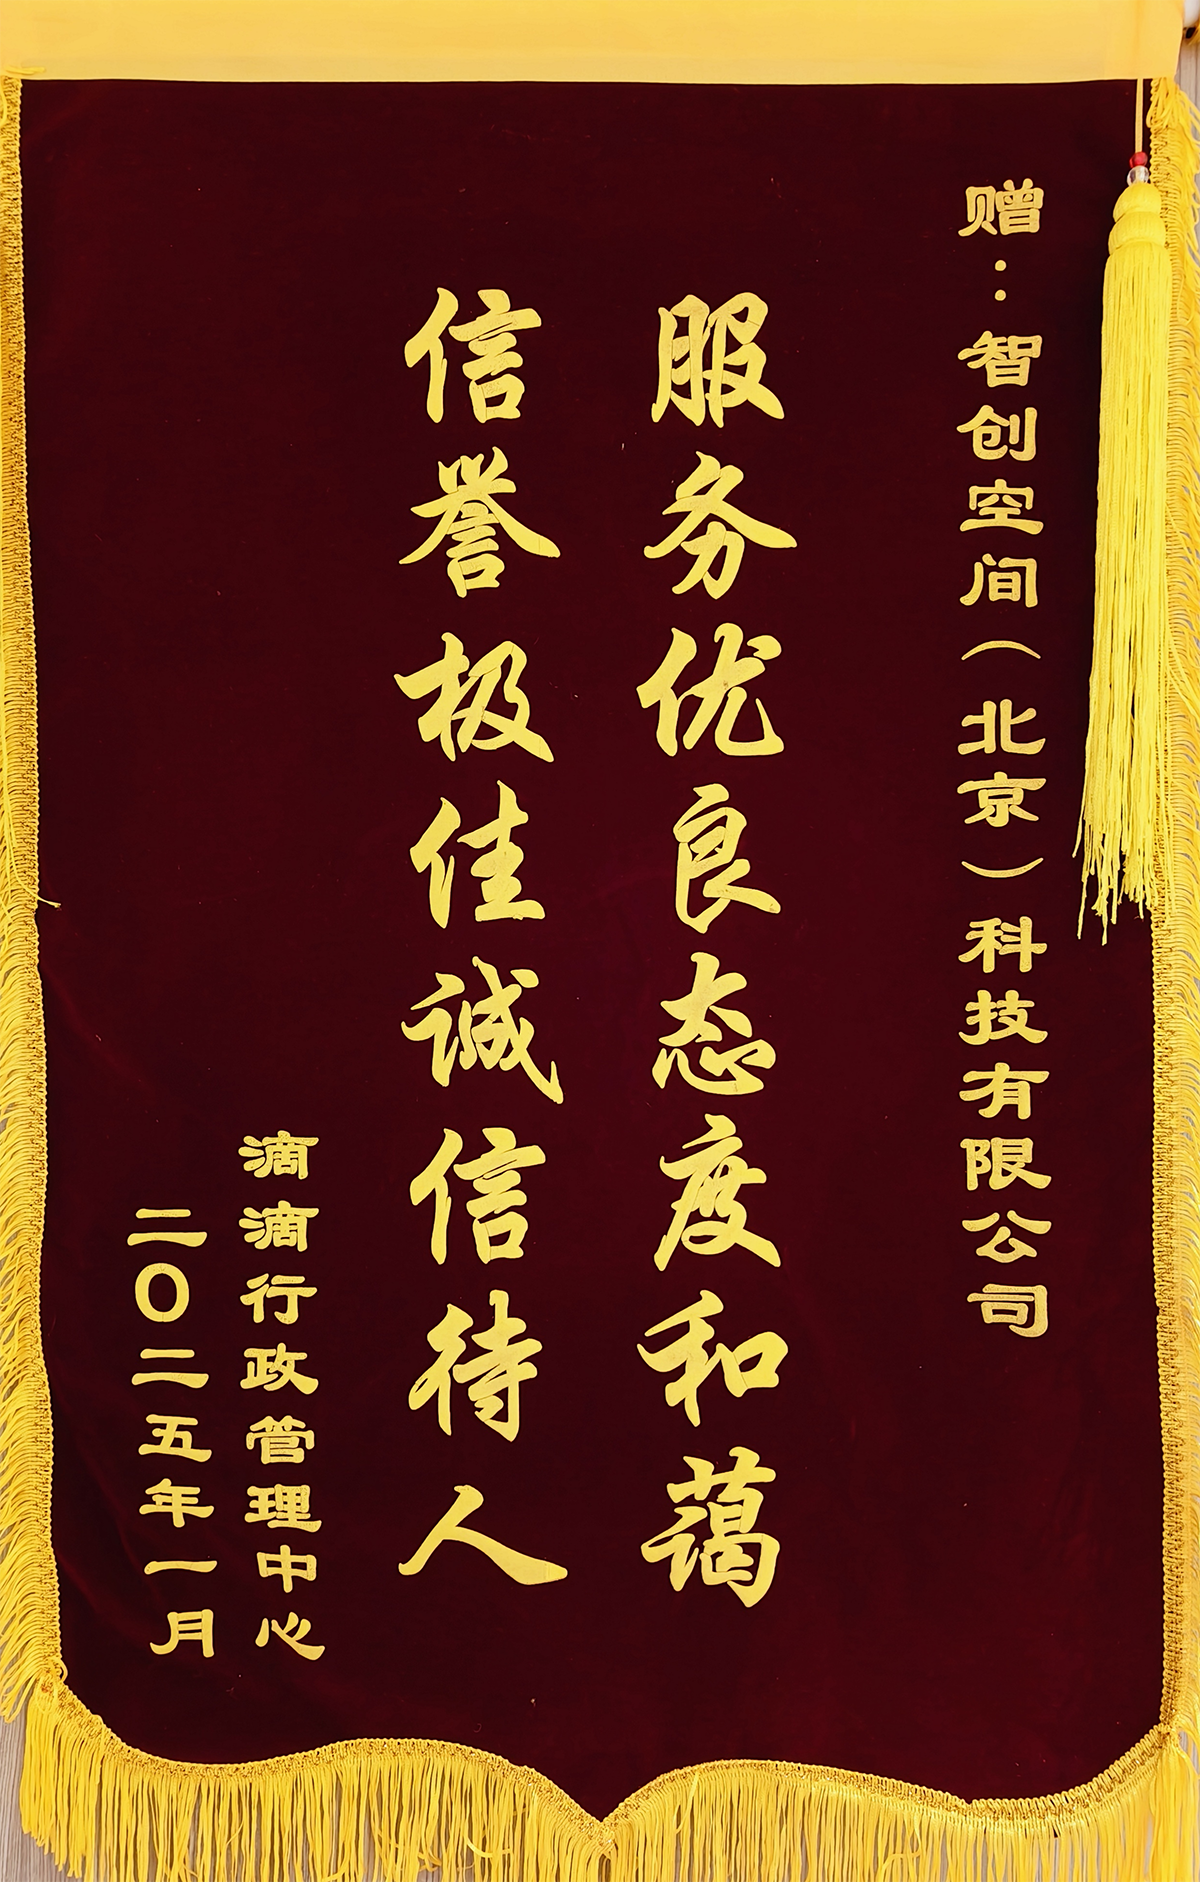 赠：智创空间（北京）科技有限公司
服务优良态度和蔼
信誉极佳诚信待人
滴滴行政管理中心
二〇二五年一月